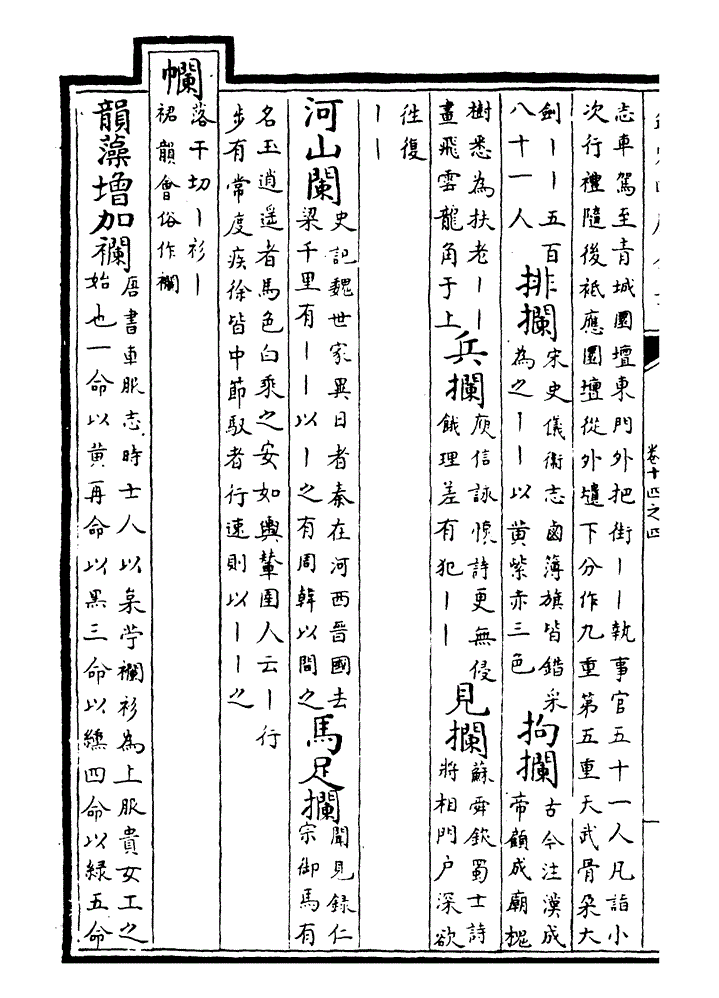 卷十四之四
志車駕至青城圜壇東門外把街丨丨執事官五十一人凡詣小
次行禮隨後祗應圜壇從外壝下分作九重第五重天武骨朶大
劍丨丨五百
八十一人
排攔
宋史儀衛志鹵簿旗皆錯采
為之丨丨以黄紫赤三色
拘攔
古今注漢成
帝顧成廟槐
樹悉為扶老丨丨
畫飛雲龍角于上
兵攔
庾信詠懷詩更無侵
餓理差有犯丨丨
見攔
蘇舜欽蜀士詩
將相門户深欲
往復
丨丨
河山闌
史記魏世家異日者秦在河西晉國去
梁千里有丨丨以丨之有周韓以間之
馬足攔
聞見録仁
宗御馬有
名玉逍遥者馬色白乘之安如輿輦圉人云丨行
步有常度疾徐皆中節馭者行速則以丨丨之
幱
落干切丨衫丨
裙韻會俗作襴
韻藻增加襴
唐書車服志時士人以枲苧襴衫為上服貴女工之
始也一命以黄再命以黑三命以纁四命以緑五命